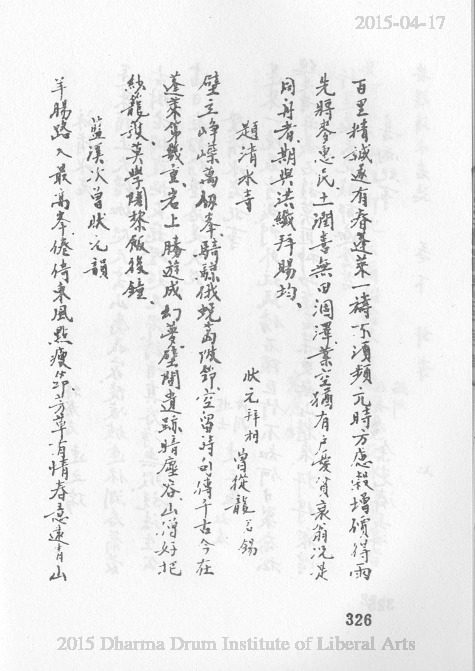 2015-04-17
百里精誠遂有春蓬萊一禱不須頻亢時方慮穀增價得雨
先將麥惠民土潤喜無田涸澤業空猶有戶憂貧衰翁況是
同舟者期與洪纖拜賜均、
題清水寺
狀元拜相 曾從龍君錫
壁立崢嶸萬仞峯騎鯨俄蛻葛陂笻空留詩句傳千古今在
蓬萊第幾重岩上勝遊成幻夢壁間遺跡暗塵容山僧好把
紗籠護莫學闍棃飯後鐘、
藍溪次曾狀元韻
羊腸路入最高峯倦倚東風點瘦笻芳草有情春意遠青山
326
2015 Dharma Drum Institute of Liberal Arts